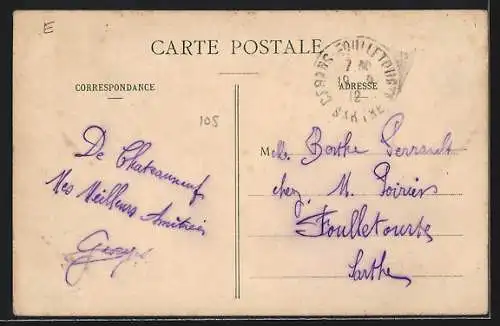 E
CARTE POSTALE
CORRESPONDANCE
ADRESSE
CERANS-FOULLETOURTE
12
SARTHE
105
De Chateauneuf
Mes Meilleurs Amitiés
Georges
Melle. Berthe Perrault
chez M. Poirier
Foulletourte
Sarthe